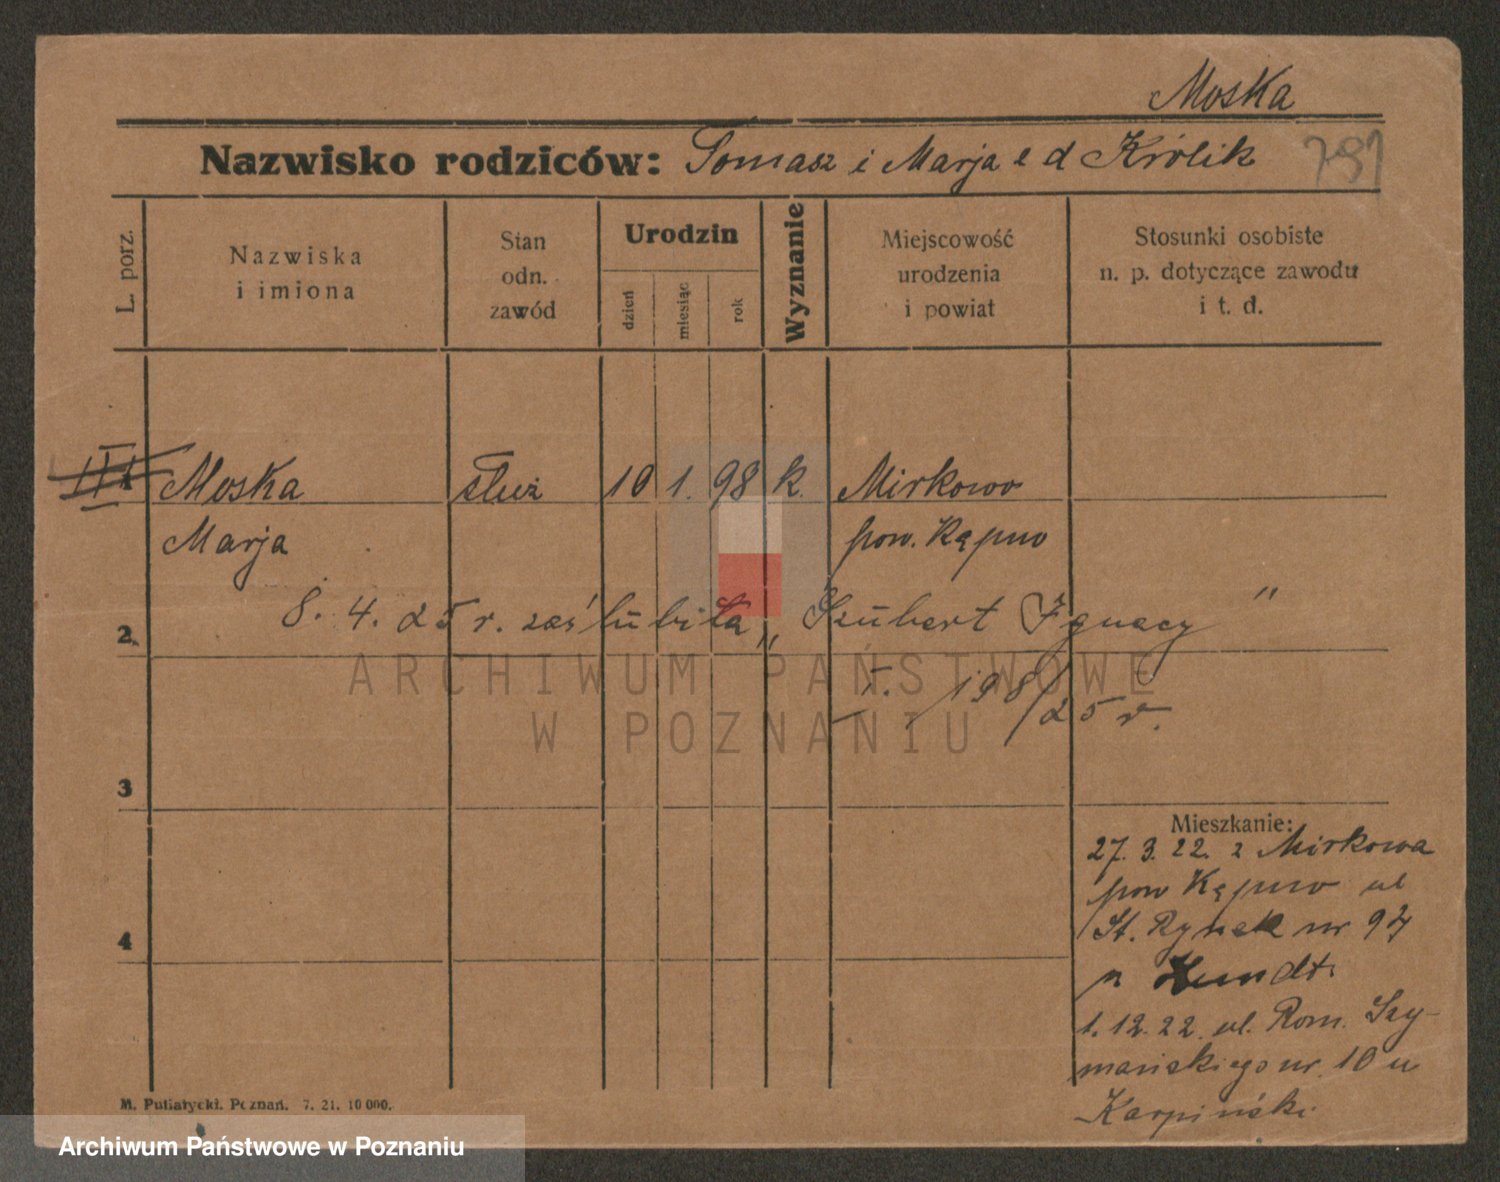 Moska
Nazwisko rodziców: Tomasz i Marja z d Królik 791
L. porz.
Nazwiska
i imiona
Stan
odn.
zawód
Urodzin
dzień
miesiąc
rok
Wyznanie
Miejscowość
urodzenia
i powiat
Stosunki osobiste
n. p. dotyczące zawodu
i t. d.
1 Moska służ 10 1. 98 k. Mirkowo
Marja pow. Kępno
8. 4. 25 r. zaślubiła „Szubert Ignacy"
2
T. 198/25 r.
3
Mieszkanie:
27. 3. 22. z Mirkowa
pow Kępno ul
St. Rynek nr 97
4
1. 12. 22. ul. Rom. Szy-
mańskiego nr. 10 u
Karpiński.
M. Putiatycki. Poznań. 7. 21. 10 000.
ARCHIWUM PAŃSTWOWE
W POZNANIU
Archiwum Państwowe w Poznaniu